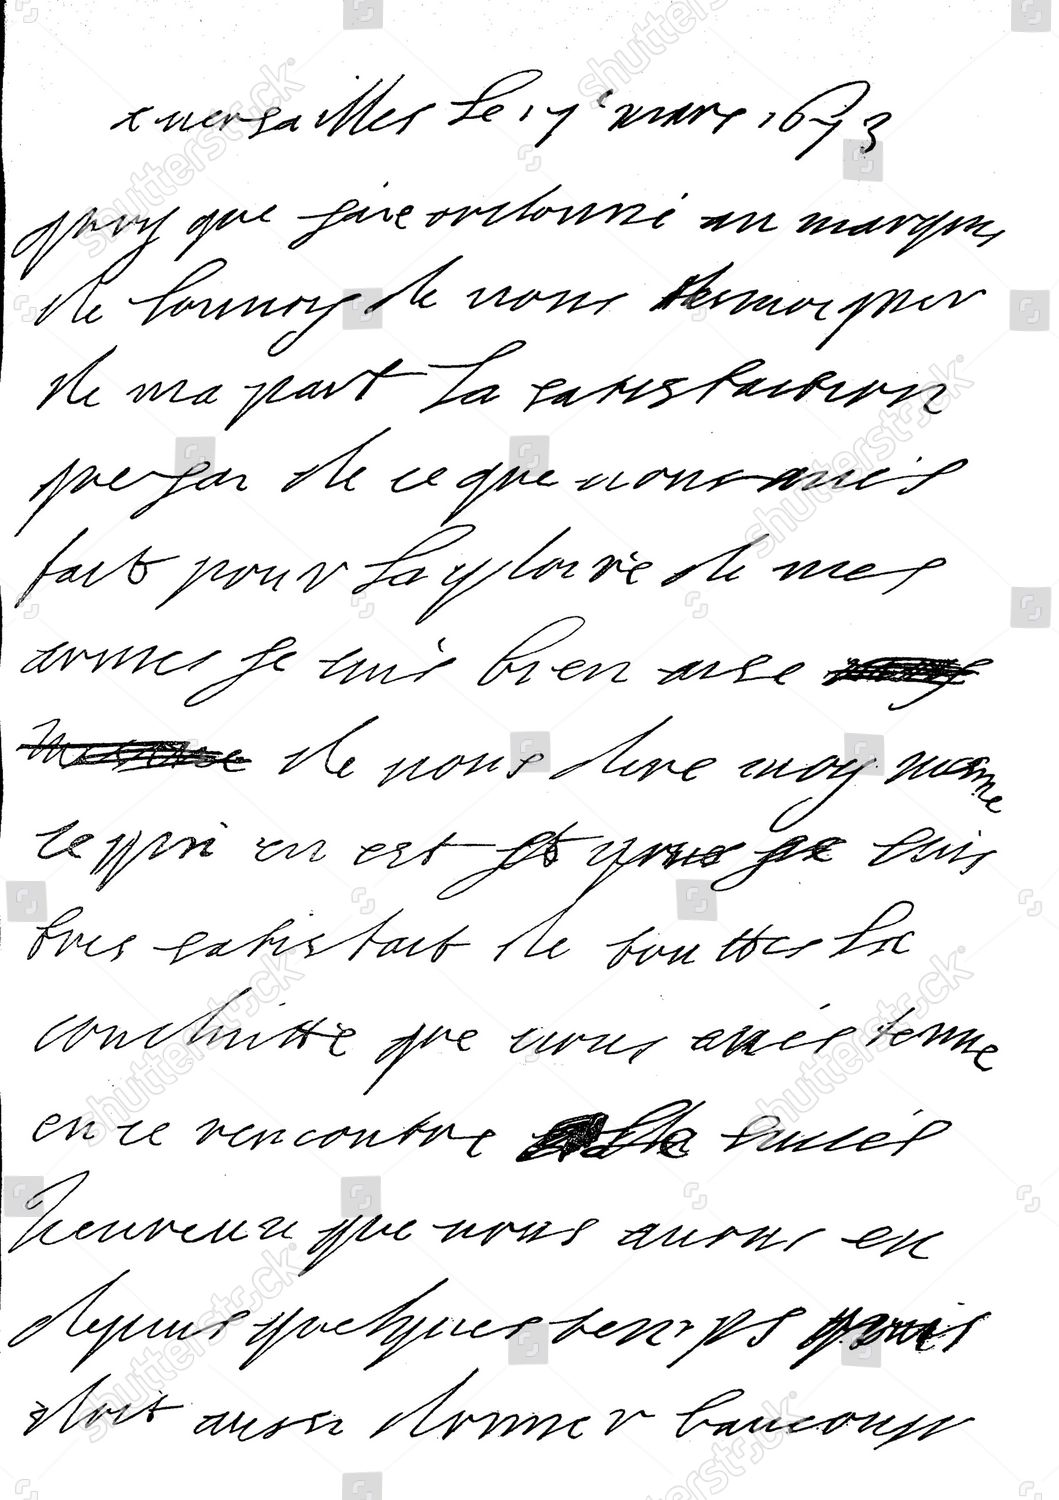 a versailles le 17e mars 1673
quoy que jaie ordonné au marquis
de lounoy de vous tesmoigner
de ma part la satisfaction
que jai de ce que vous avés
fait pour la gloire de mes
armes je suis bien aise
de vous dire moy mesme
ce qui en est et que je suis
tres satisfait de touttes la
conduitte que vous avés tenue
en ce rencontre le succés
heureux que vous avons eu
depuis quelques temps vous
doit aussi donner baucoup